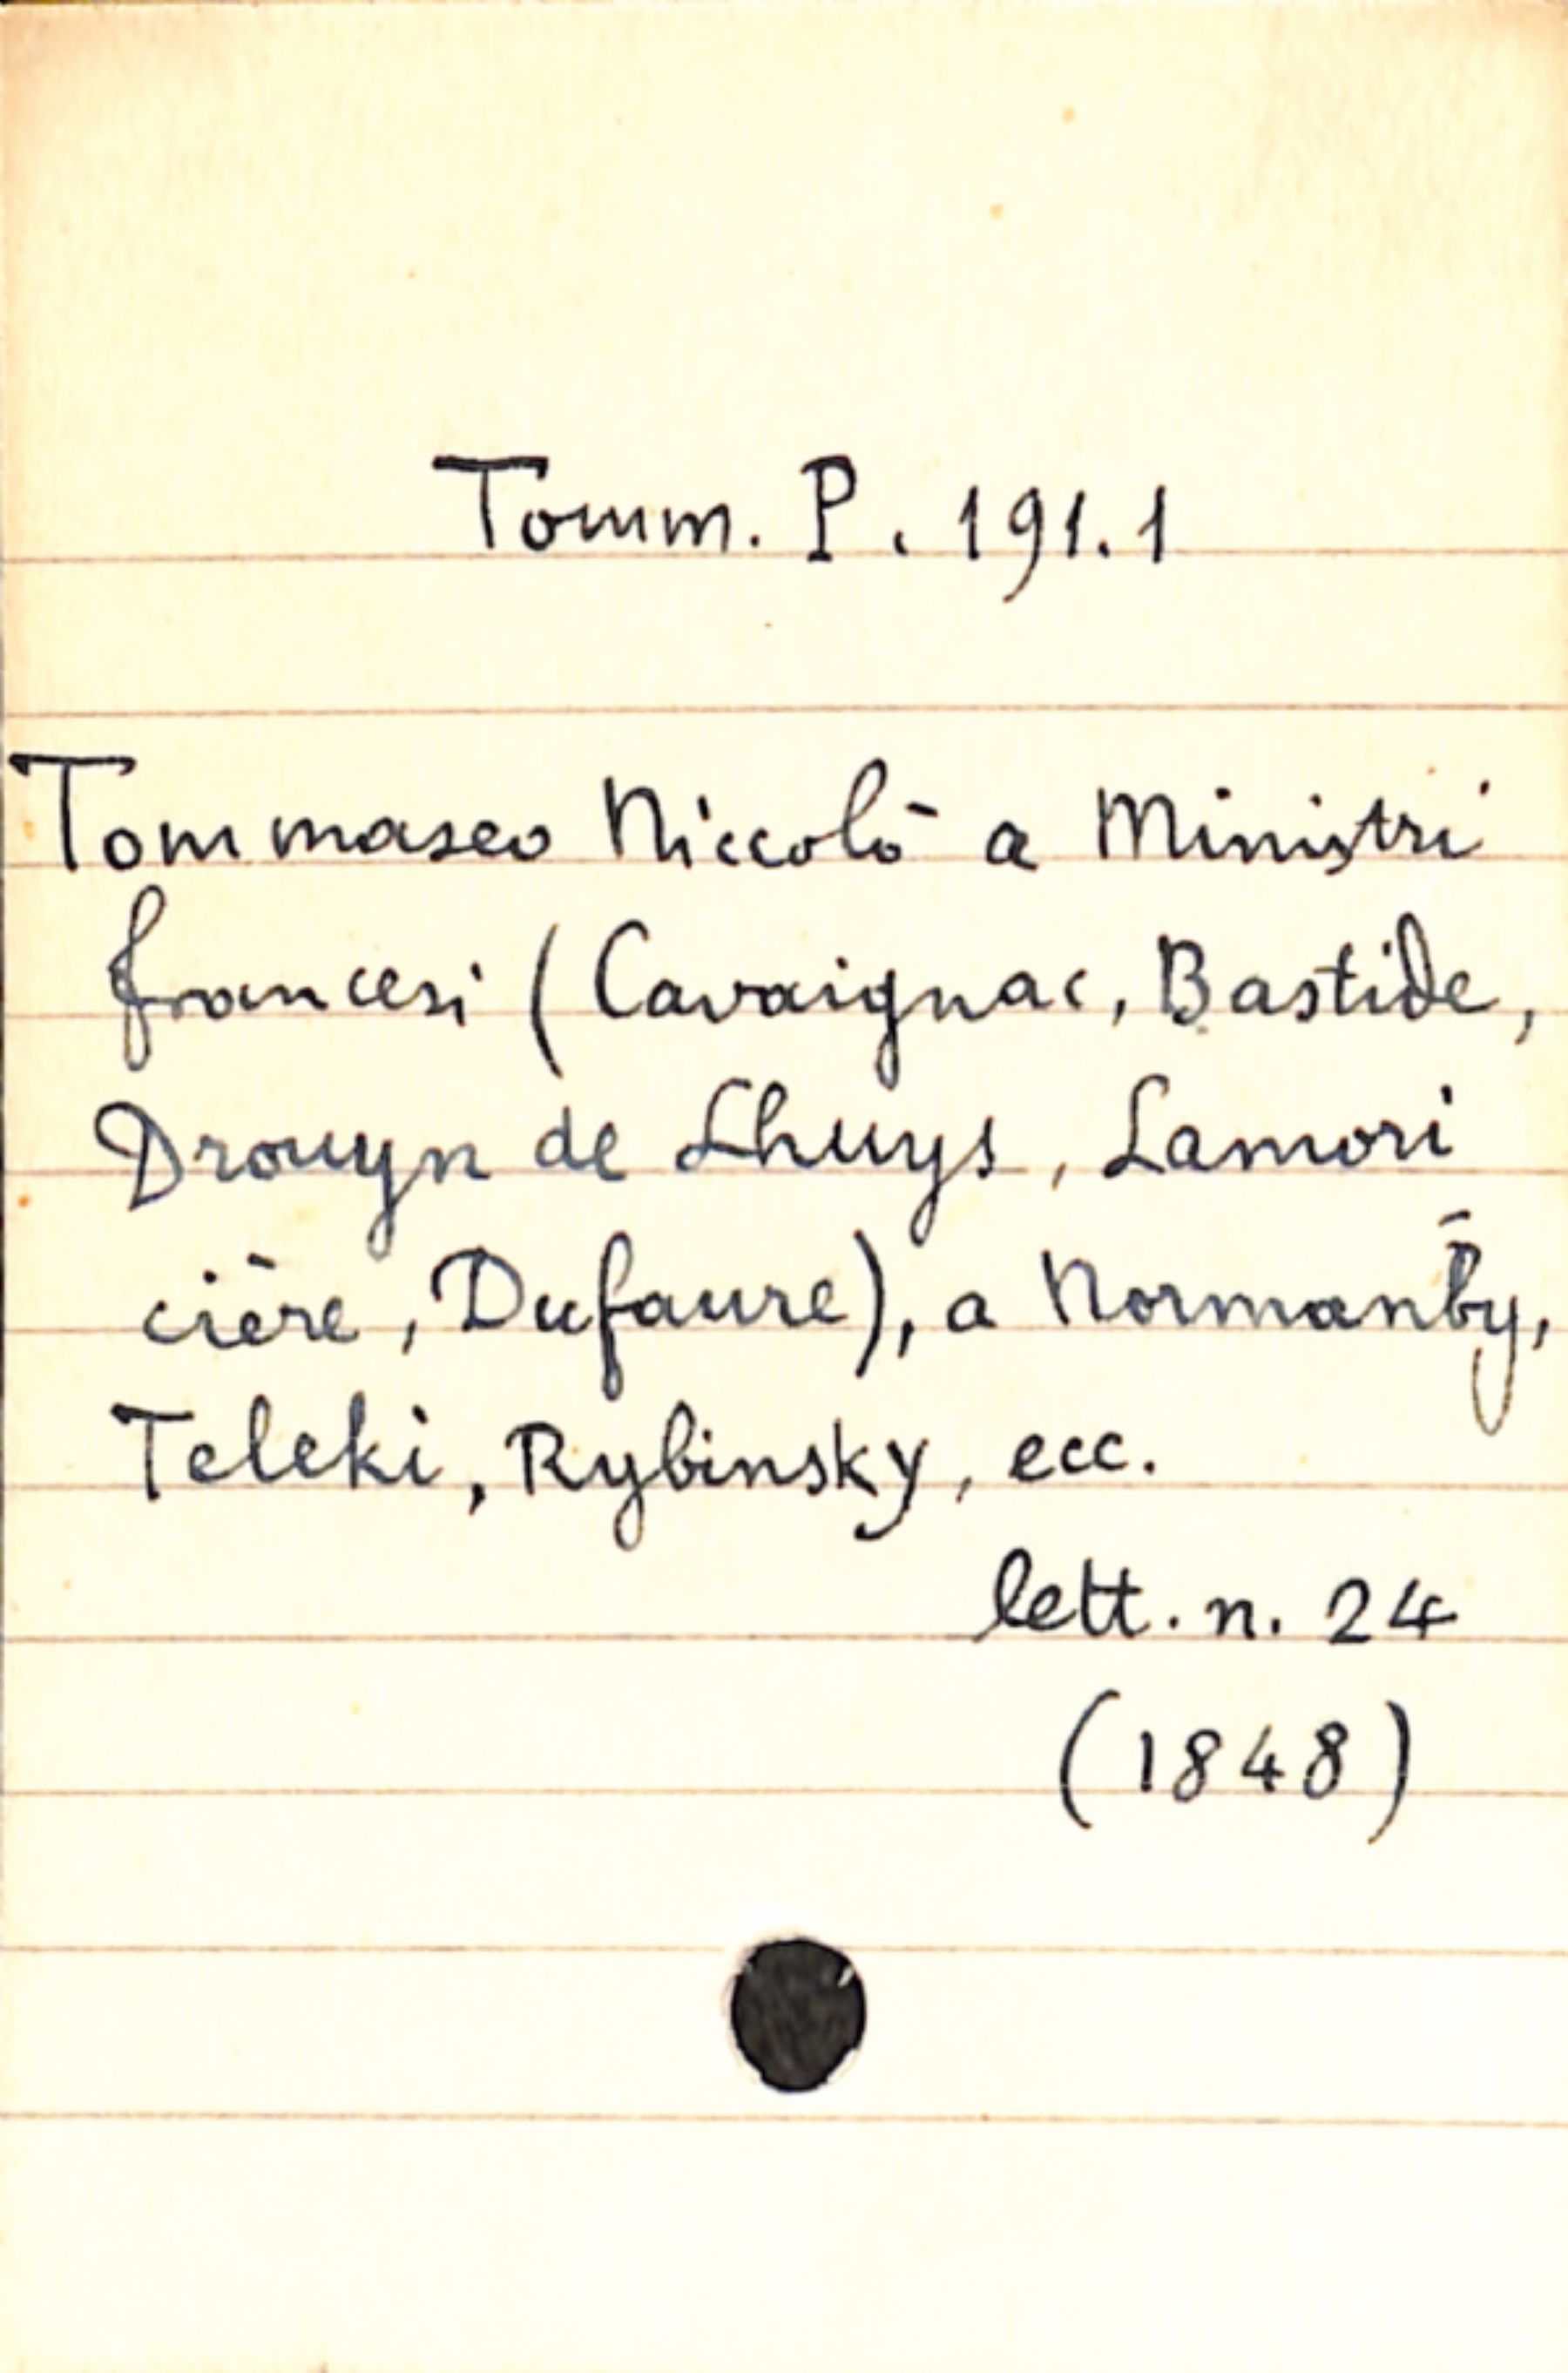 Tomm. P. 191.1
Tommaseo Niccolò a Ministri
francesi (Cavaignac, Bastide,
Drouyn de Lhuys, Lamori
cière, Dufaure), a Normanby,
Teleki, Rybinsky, ecc.
lett. n. 24
(1848)